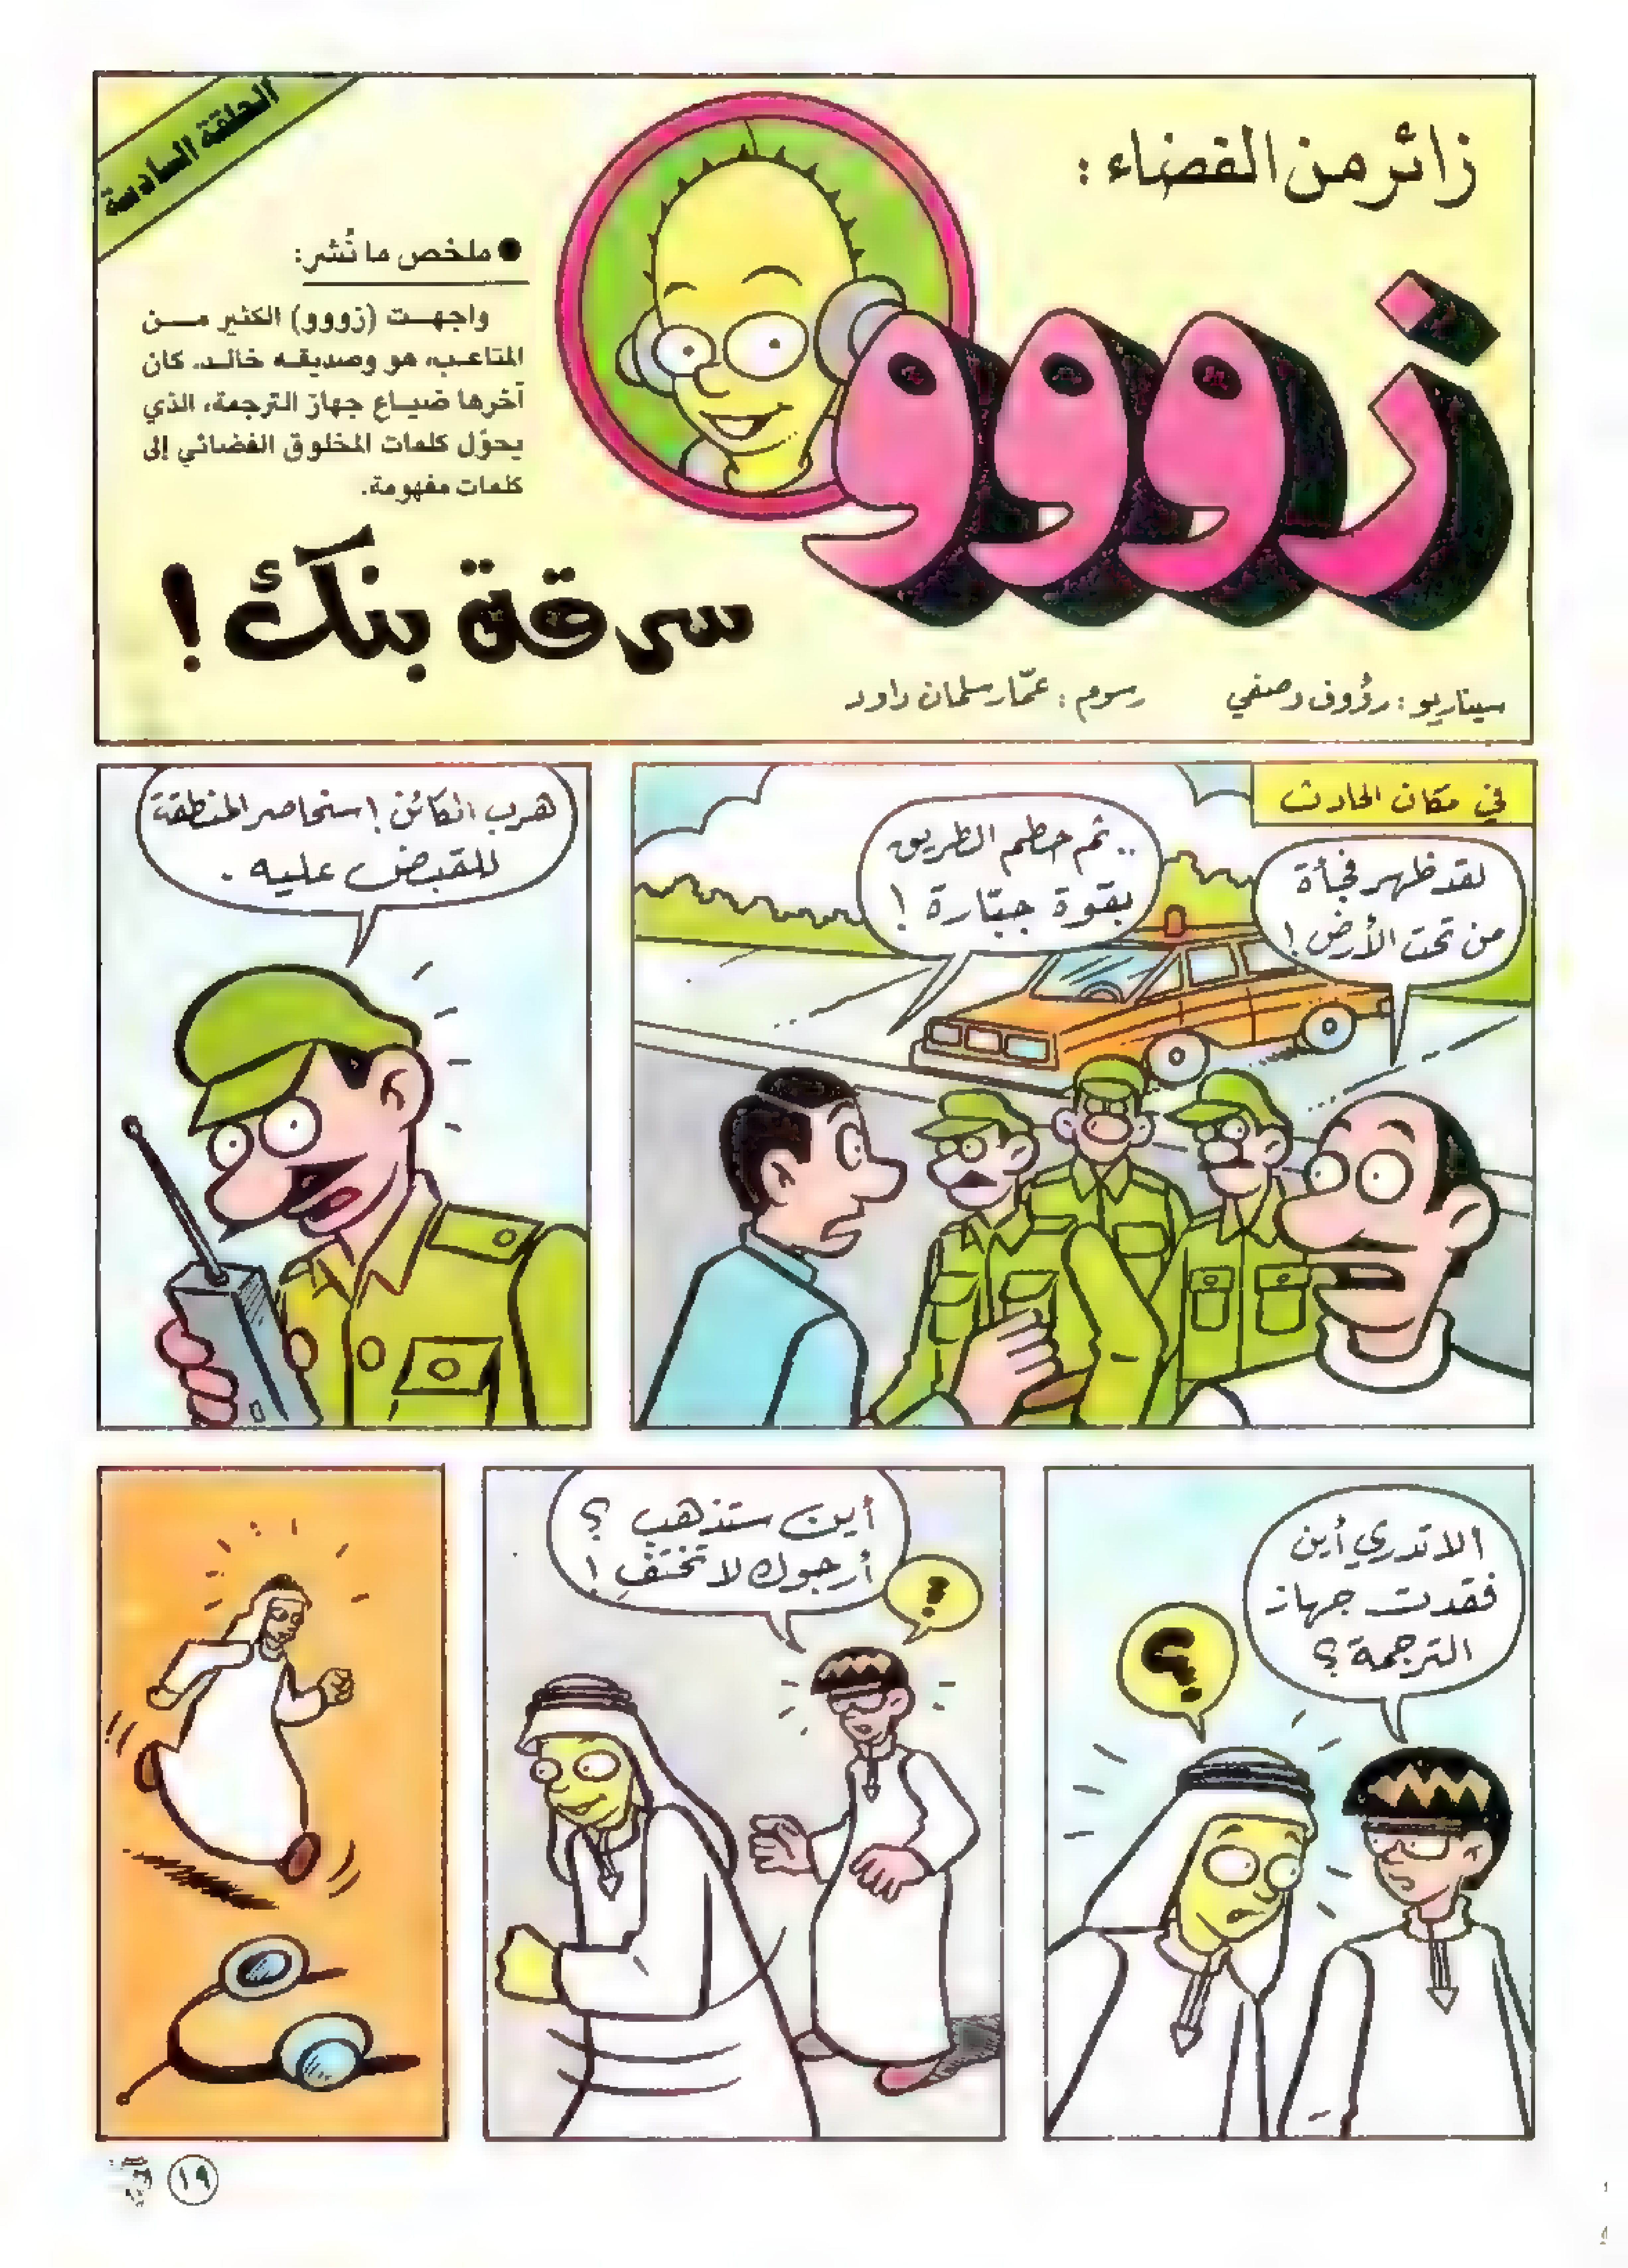 الحلقة السادسة
زائر من الفضاء :
زووو
● ملخص ما نُشر:
واجهت (زووو) الكثير من
المتاعب، هو وصديقه خالد. كان
آخرها ضياع جهاز الترجمة، الذي
يحوّل كلمات المخلوق الفضائي إلى
كلمات مفهومة.
سرقة بنك !
سيناريو : رؤوف وصفي
رسوم : عمّار سلمان داود
في مكان الحادث
لقد ظهر فجأة
من تحت الأرض !
.. ثم حطم الطريق
بقوة جبّارة !
هرب الكائن ! سنحاصر المنطقة
للقبض عليه .
ألا تدري أين
فقدت جهاز
الترجمة ؟
؟
أين ستذهب ؟
أرجوك لا تختفِ !
!
١٩